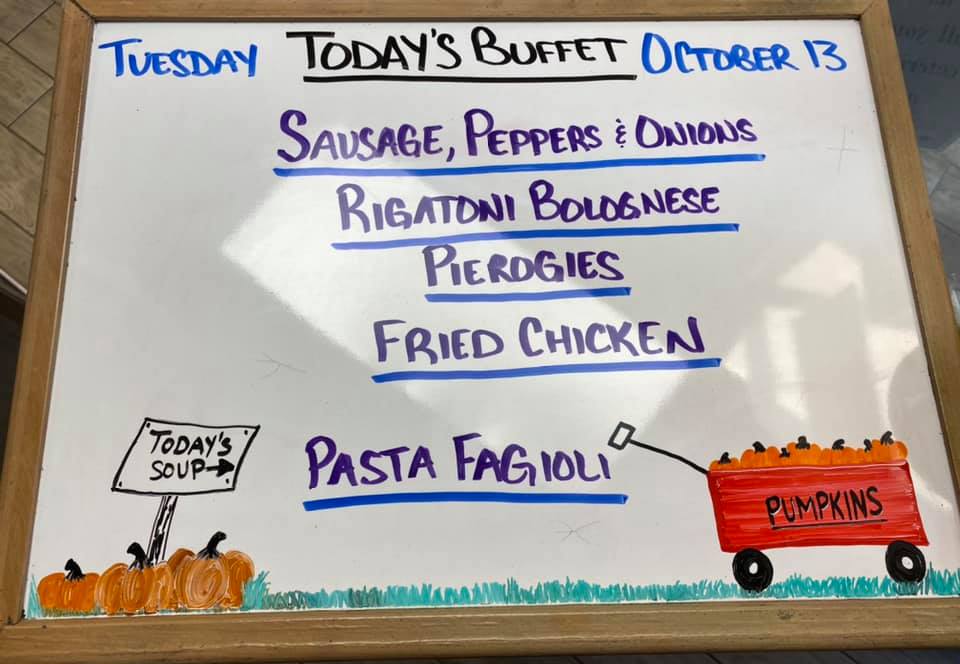 TUESDAY TODAY'S BUFFET OCTOBER 13
SAUSAGE, PEPPERS & ONIONS
RIGATONI BOLOGNESE
PIEROGIES
FRIED CHICKEN
TODAY'S
SOUP→
PASTA FAGIOLI
PUMPKINS